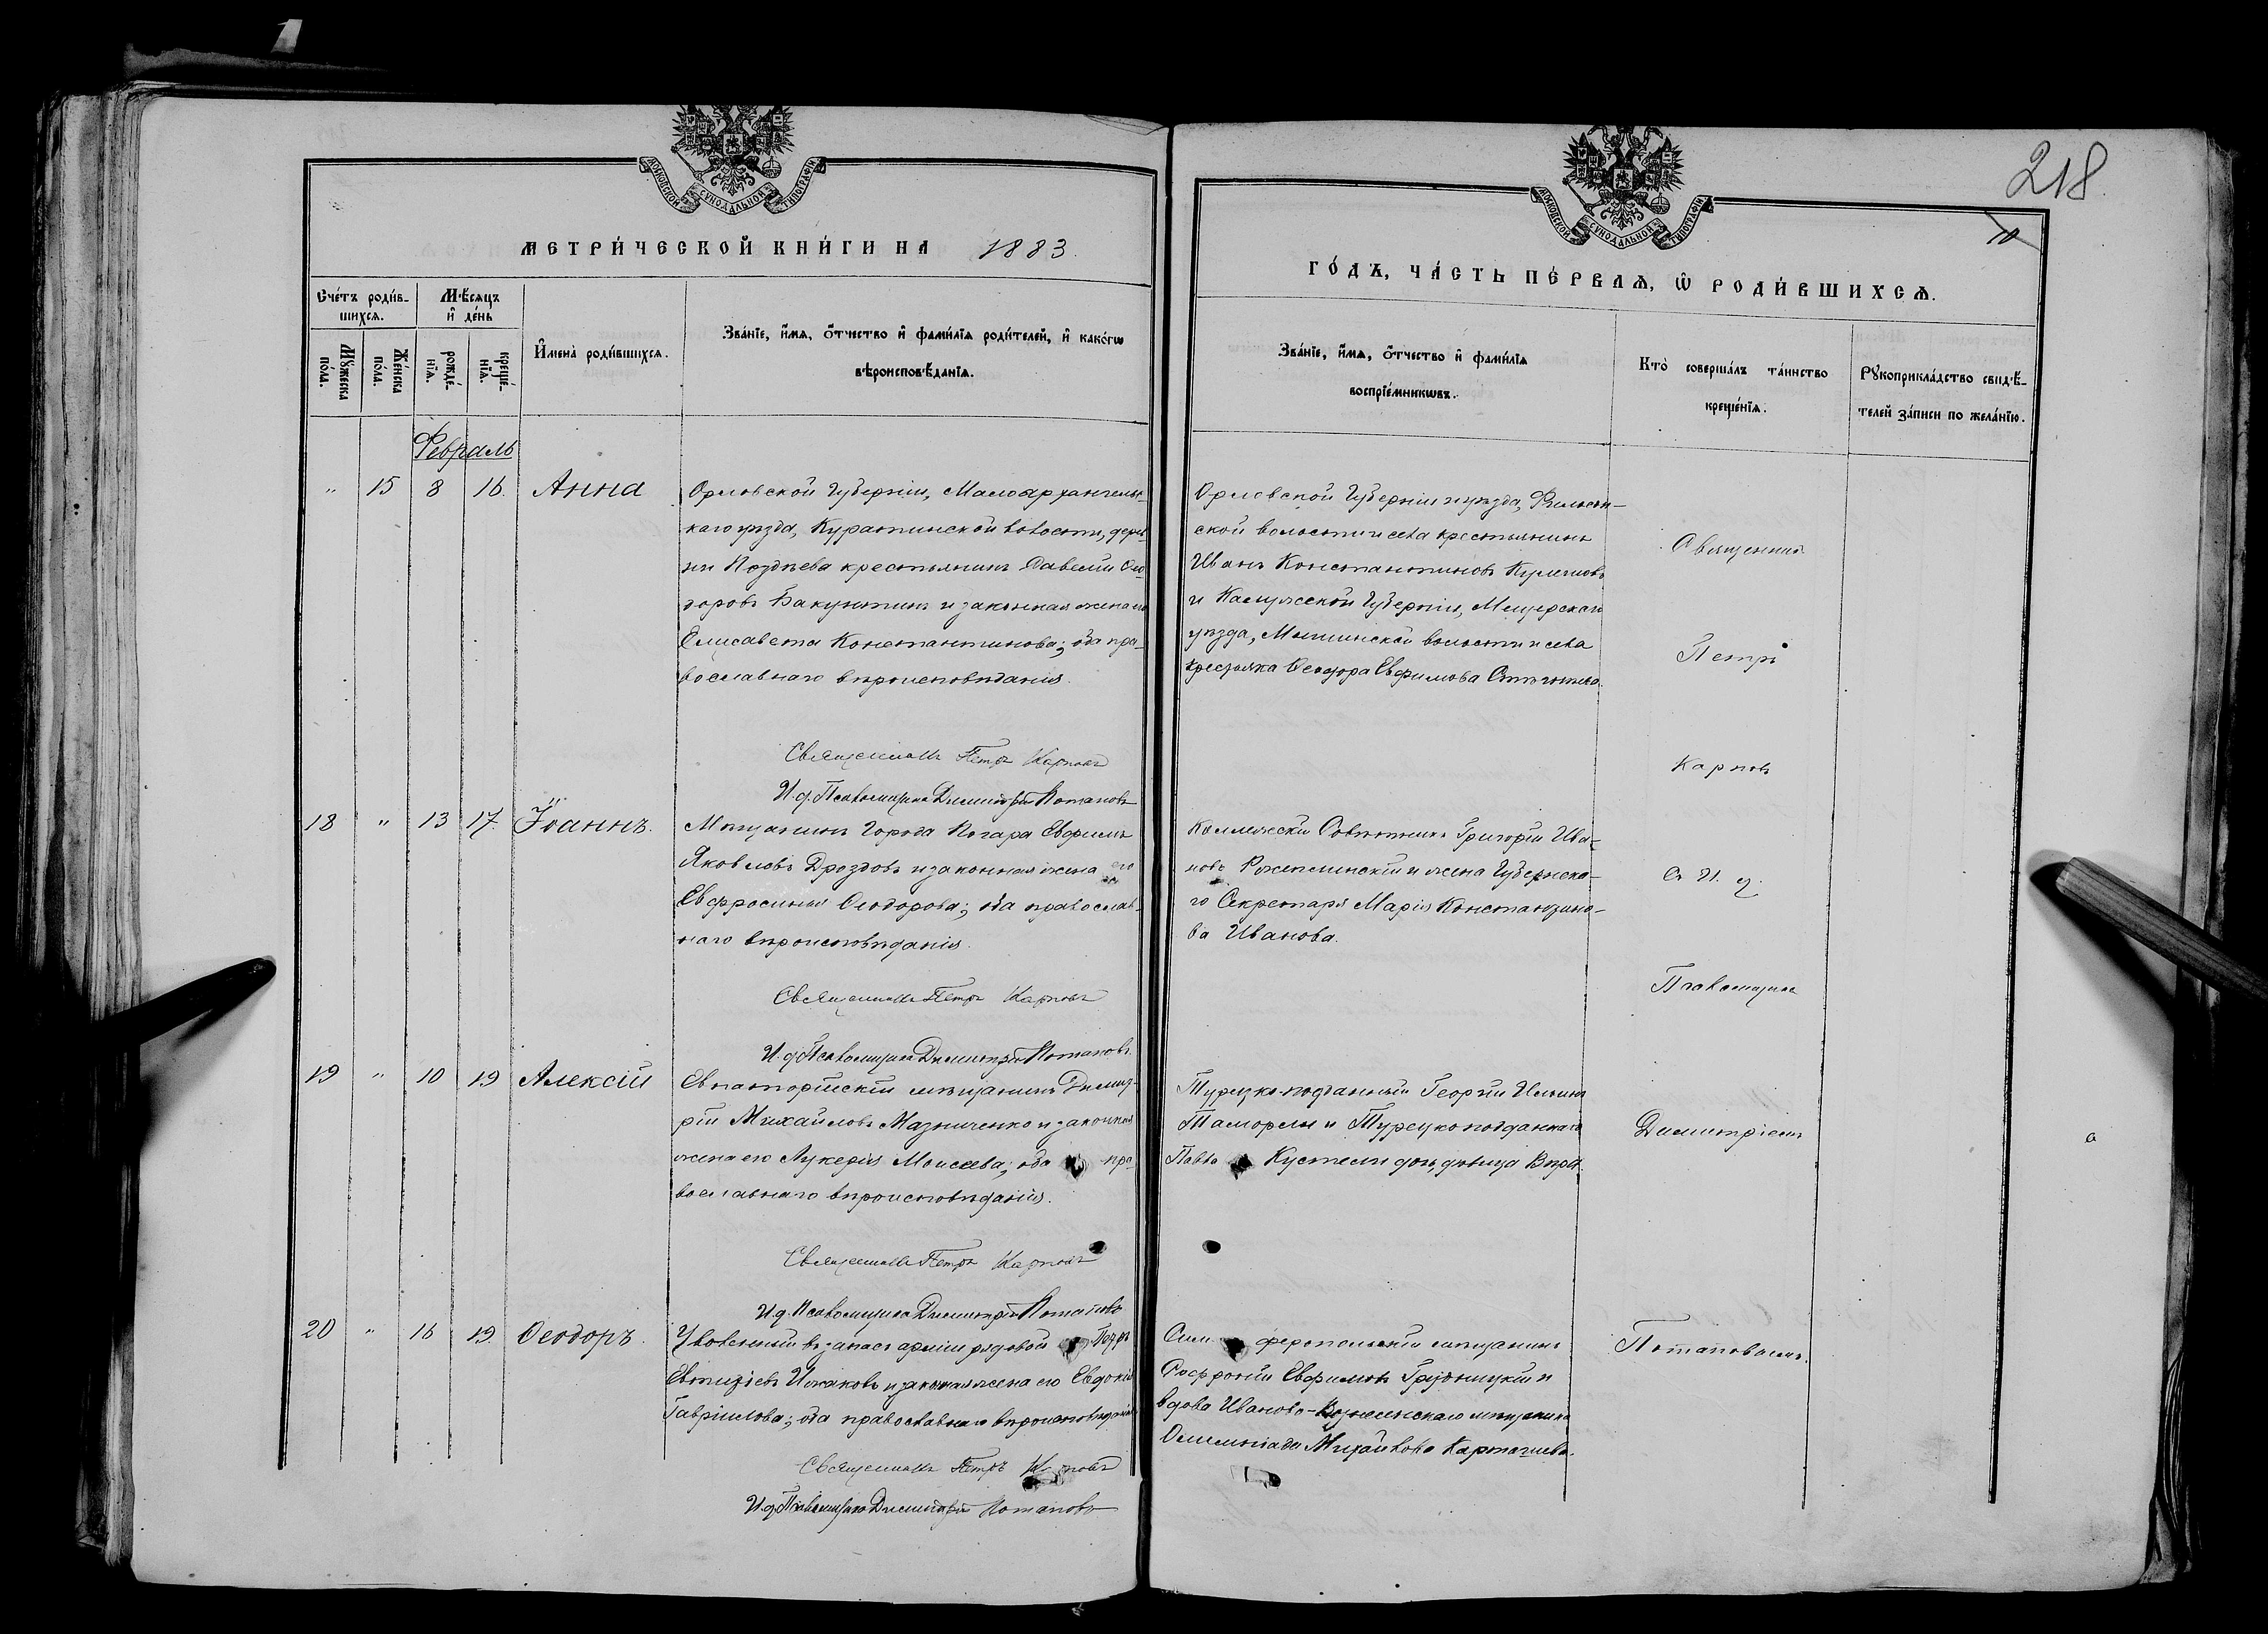 1
МОСКОВСКОЙ СѴНОДАЛЬНОЙ ТИПОГРАФІИ
МЕТРИ́ЧЕСКОЙ КНИ́ГИ НА 1883.
Сче́тъ роди́в-
шихся.
Мѣ́сяцъ
и҆ де́нь
Мꙋ́жеска
по́ла.
Же́нска
по́ла.
рожде́-
нїѧ.
креще́-
нїѧ.
И҆мена̀ роди́вшихсѧ.
Зва́нїе, и҆́мѧ, ѻ҆́тчество и҆ фами́лїѧ роди́телей, и҆ како́гѡ
вѣроисповѣ́данїѧ.
Февраль
" 15 8 16. Анна
Орловской Губерніи, Малоархангельс-
каго уѣзда, Куракинской волости, дерев-
ни Позднева крестьянинъ Савелій Ѳео-
доровъ Бакунинъ и законная жена его
Елисавета Константинова; оба пра-
вославнаго вѣроисповѣданія.
Священникъ Петръ Карповъ
И. д. Псаломщика Димитрій Потаповъ
18 " 13 17. Іоаннъ.
Мѣщанинъ города Погара Евфимъ
Яковлевъ Дроздовъ и законная жена его
Евфросинія Ѳеодорова; оба православ-
наго вѣроисповѣданія.
Священникъ Петръ Карповъ
И. д. Псаломщика Димитрій Потаповъ.
19 " 10 19 Алексій
Евпаторійскій мѣщанинъ Димит-
рій Михайловъ Мазниченко и законная
жена его Лукерія Моисеева; оба пра-
вославнаго вѣроисповѣданія.
Священникъ Петръ Карповъ
И. д. Псаломщика Димитрій Потаповъ
20 " 16 19. Ѳеодоръ.
Уволенный въ запасъ арміи рядовой Петръ
Евтихіевъ и законная жена его Евдокія
Гавріилова; оба православнаго вѣроисповѣданія
Священникъ Петръ Карповъ
И. д. Псаломщика Димитрій Потаповъ
218.
10
МОСКОВСКОЙ СѴНОДАЛЬНОЙ ТИПОГРАФІИ
ГО́ДЪ, ЧА́СТЬ ПЕ́РВАѦ, Ѡ҆ РОДИ́ВШИХСѦ.
Зва́нїе, и҆́мѧ, ѻ҆́тчество и҆ фами́лїѧ
воспрїе́мникѡвъ.
Кто̀ соверша́лъ та́инство
креще́нїѧ.
Рꙋкоприкла́дство свидѣ́-
телей за́писи по жела́нїю.
Орловской Губерніи и уѣзда,
ской волости и села крестьянинъ
Иванъ Константиновъ
и Калужской Губерніи, Мещовскаго
уѣзда, волости и села
Ѳеодора Евфимова
Коллежскій Совѣтникъ Григорій Ива-
новъ и жена Губернска-
го Секретаря Марія Константино-
ва Иванова.
Турецко-подданный Георгій Ильинъ
и Турецко подданнаго
Павла дочь, дѣвица Вѣра.
Симферопольскій мѣщанинъ
Софроній Евфимовъ и
вдова Иваново-Вознесенскаго мѣщанина
Олимпіада Михайлова Карташева.
Священникъ
Петръ
Карповъ
Съ И. д.
Псаломщика
Димитріемъ
Потаповымъ.